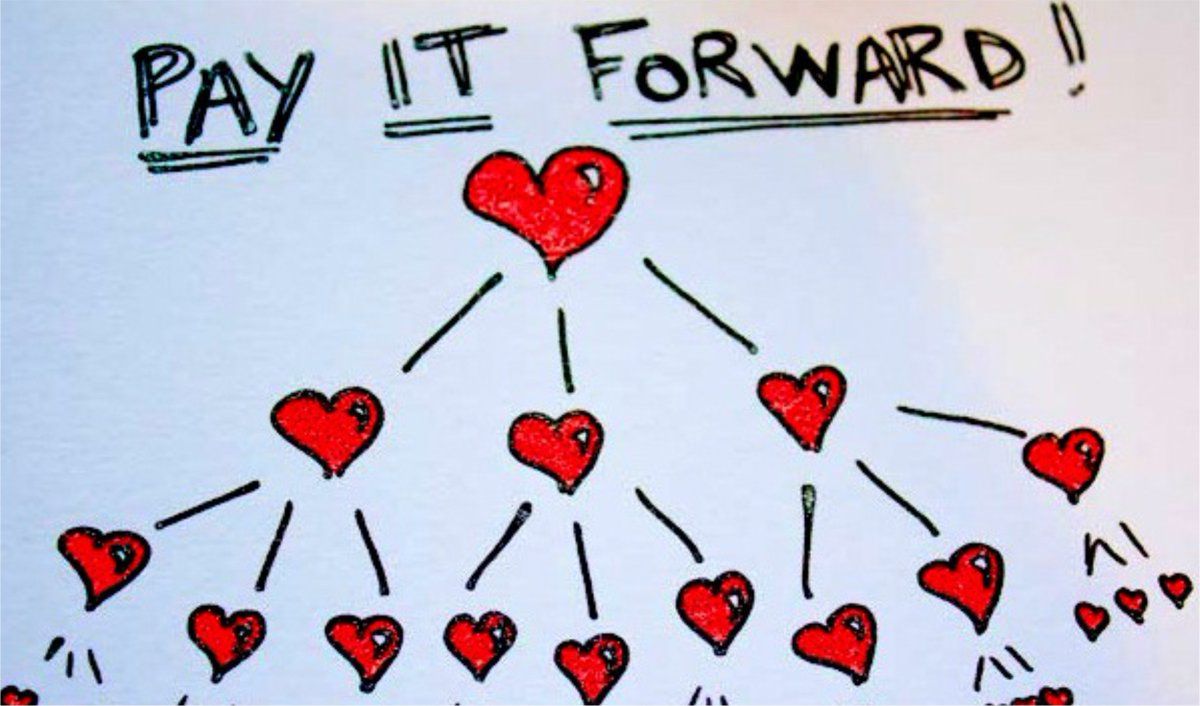 PAY IT FORWARD!